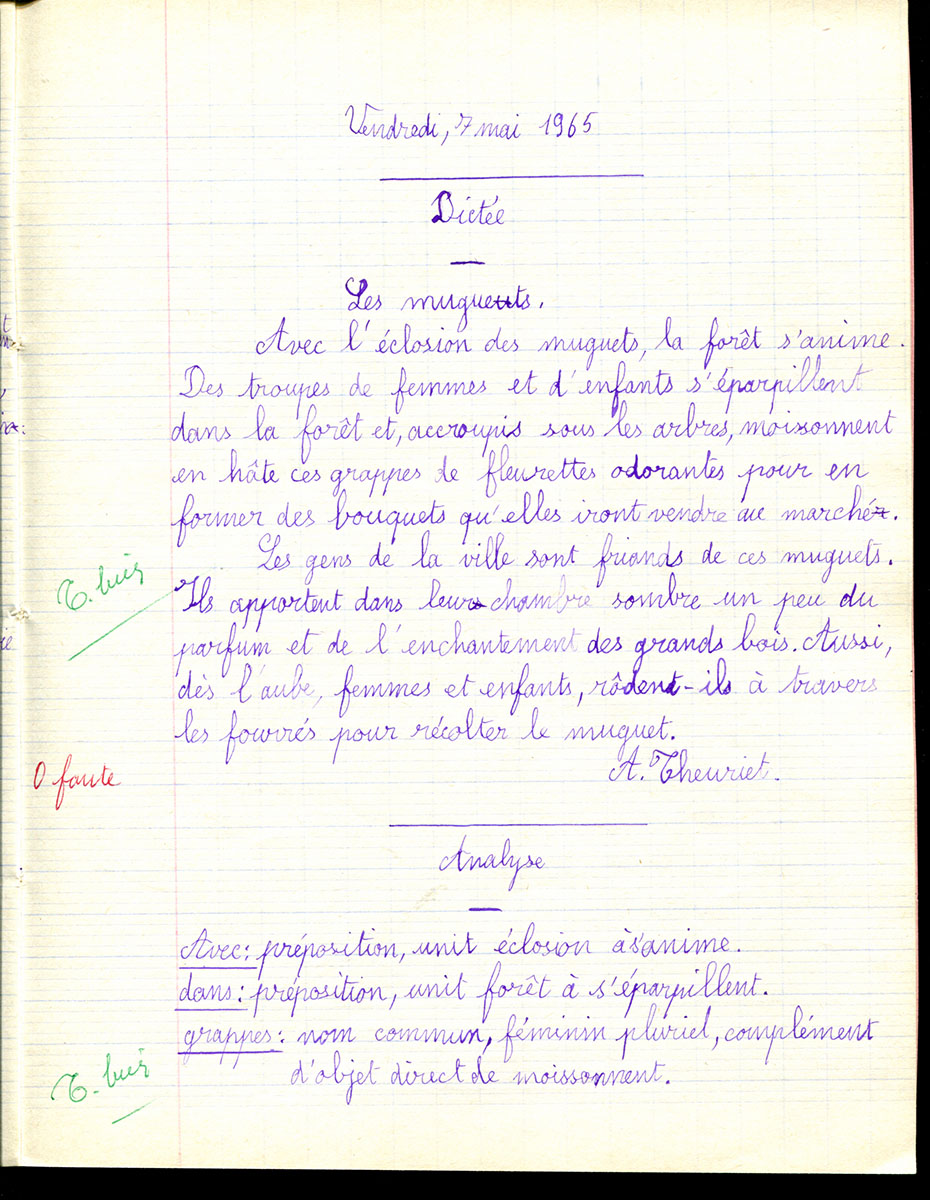 Vendredi, 7 mai 1965
Dictée
Les muguets.
Avec l'éclosion des muguets, la forêt s'anime.
Des troupes de femmes et d'enfants s'éparpillent
dans la forêt et, accroupis sous les arbres, moissonnent
en hâte ces grappes de fleurettes odorantes pour en
former des bouquets qu'elles iront vendre au marché.
Les gens de la ville sont friands de ces muguets.
T. bien
Ils apportent dans leur chambre sombre un peu du
parfum et de l'enchantement des grands bois. Aussi,
dès l'aube, femmes et enfants, rôdent-ils à travers
les fourrés pour récolter le muguet.
0 faute
A. Theuriet.
Analyse
Avec: préposition, unit éclosion à s'anime.
dans: préposition, unit forêt à s'éparpillent.
grappes: nom commun, féminin pluriel, complément
d'objet direct de moissonnent.
T. bien